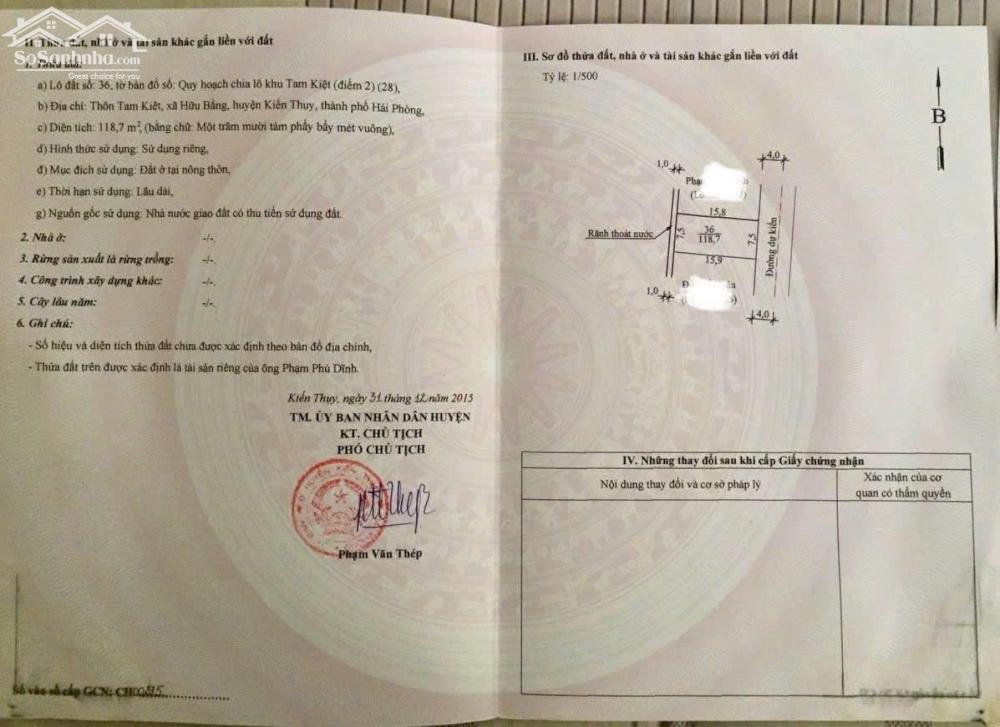 SoSanhnha.com
Great choice for you
II. Thửa đất, nhà ở và tài sản khác gắn liền với đất
1. Thửa đất:
a) Lô đất số: 36, tờ bản đồ số: Quy hoạch chia lô khu Tam Kiệt (điểm 2) (28),
b) Địa chỉ: Thôn Tam Kiệt, xã Hữu Bằng, huyện Kiến Thụy, thành phố Hải Phòng,
c) Diện tích: 118,7 m², (bằng chữ: Một trăm mười tám phẩy bẩy mét vuông),
d) Hình thức sử dụng: Sử dụng riêng,
đ) Mục đích sử dụng: Đất ở tại nông thôn,
e) Thời hạn sử dụng: Lâu dài,
g) Nguồn gốc sử dụng: Nhà nước giao đất có thu tiền sử dụng đất.
2. Nhà ở: -/-.
3. Rừng sản xuất là rừng trồng: -/-.
4. Công trình xây dựng khác: -/-.
5. Cây lâu năm: -/-.
6. Ghi chú:
- Số hiệu và diện tích thửa đất chưa được xác định theo bản đồ địa chính,
- Thửa đất trên được xác định là tài sản riêng của ông Phạm Phú Dĩnh.
Kiến Thụy, ngày 31 tháng 12 năm 2015
TM. ỦY BAN NHÂN DÂN HUYỆN
KT. CHỦ TỊCH
PHÓ CHỦ TỊCH
Phạm Văn Thép
Số vào sổ cấp GCN: CH
III. Sơ đồ thửa đất, nhà ở và tài sản khác gắn liền với đất
Tỷ lệ: 1/500
B
4,0
1,0
15,8
Rãnh thoát nước
7,5
36
118,7
7,5
Đường dự kiến
15,9
1,0
4,0
IV. Những thay đổi sau khi cấp Giấy chứng nhận
Nội dung thay đổi và cơ sở pháp lý
Xác nhận của cơ
quan có thẩm quyền